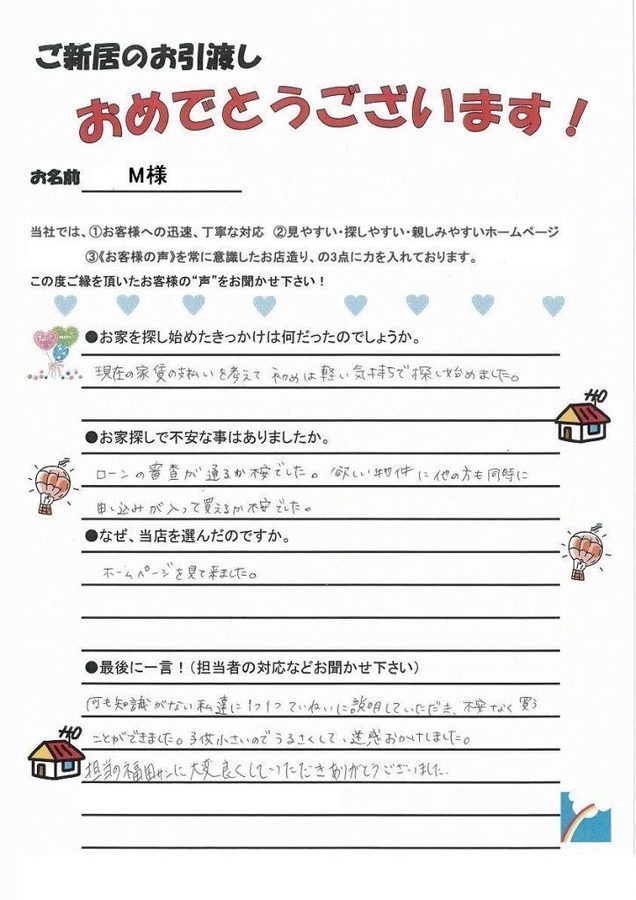 ご新居のお引渡し
おめでとうございます！
お名前 M様
当社では、①お客様への迅速、丁寧な対応 ②見やすい・探しやすい・親しみやすいホームページ
③《お客様の声》を常に意識したお店造り、の3点に力を入れております。
この度ご縁を頂いたお客様の“声”をお聞かせ下さい！
●お家を探し始めたきっかけは何だったのでしょうか。
現在の家賃の支払いを考えて 初めは軽い気持ちで探し始めました。
●お家探しで不安な事はありましたか。
ローンの審査が通るか不安でした。欲しい物件に他の方も同時に
申し込みが入って買えるか不安でした。
●なぜ、当店を選んだのですか。
ホームページを見て来ました。
●最後に一言！（担当者の対応などお聞かせ下さい）
何も知識がない私達に1つ1つていねいに説明していただき、不安なく買う
ことができました。子供小さいのでうるさくして、迷惑おかけしました。
担当の福田サンに大変良くしていただきありがとうございました。